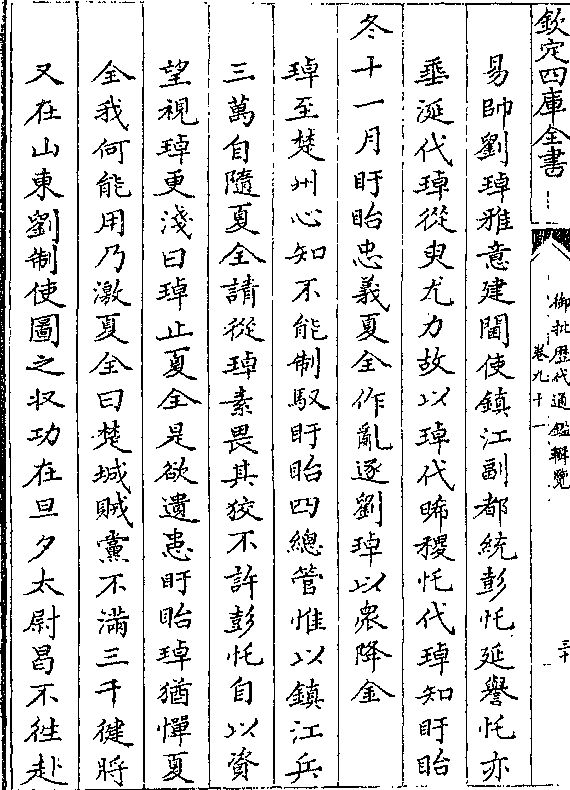 欽定四庫全書
御批歷代通鑑輯覽
卷九十一
三十
易帥劉琸雅意建閫使鎮江副都統彭忔延譽忔亦
垂涎代琸從臾尤力故以琸代晞稷忔代琸知盱眙
冬十一月盱眙忠義夏全作亂逐劉琸以衆降金
琸至楚州心知不能制馭盱眙四總管惟以鎮江兵
三萬自隨夏全請從琸素畏其狡不許彭忔自以資
望視琸更淺曰琸止夏全是欲遺患盱眙琸猶憚夏
全我何能用乃激夏全曰楚城賊黨不滿三千健將
又在山東劉制使圖之收功在旦夕太尉曷不往赴